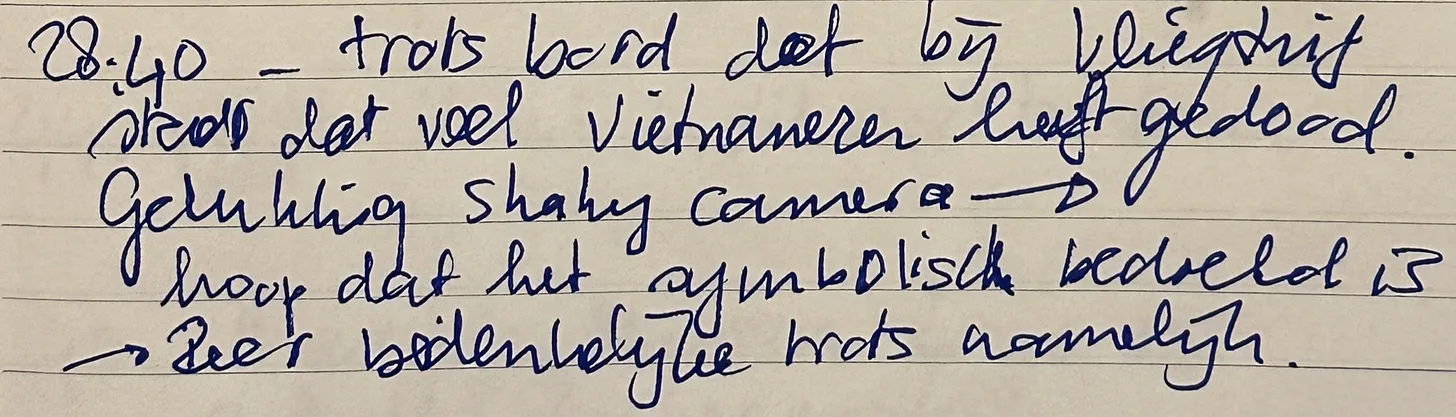 28:40 – trots bord dat bij vliegtuig
staat dat veel Vietnamezen heeft gedood.
Gelukkig shaky camera →
hoop dat het symbolisch bedoeld is
→ Zeer bedenkelijke trots namelijk.